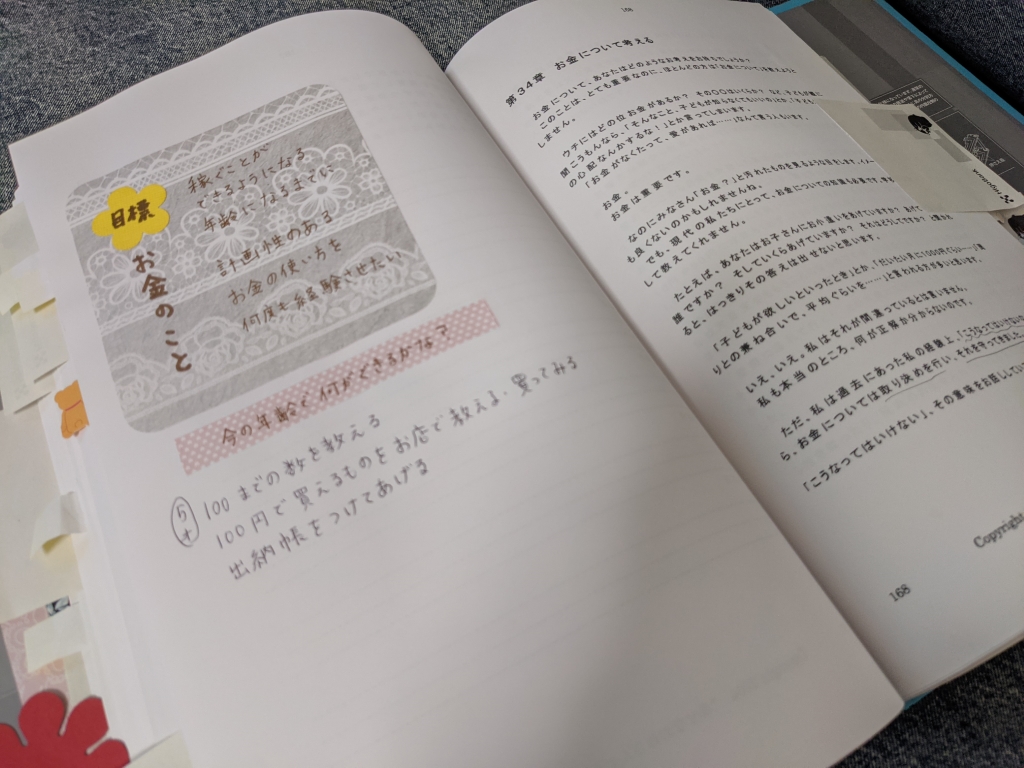 目標
お金のこと
稼ぐことが
できるようになる
年齢になるまでに
計画性のある
お金の使い方を
何度も経験させたい
今の年齢で何ができるかな?
5才
100までの数を教える
100円で買えるものをお店で教える・買ってみる
出納帳をつけてあげる
168
第34章 お金について考える
お金について、あなたはどのような
このことは、とても重要なのに、ほとんどの方が
しません。
ウチにはどの位お金があるか? その
聞こうもんなら、「そんなこと、子どもが
の心配なんかするな!」とか言ってしまいます。
「お金がなくたって、愛があれば……」なんて言う人もいます。
お金。
お金は重要です。
なのにみなさん「お金?」と汚れたものを見るような目をします。
も良くないのかもしれませんね。
でも、現代の私たちにとって、お金についての知識も必要です。
して教えてくれません。
たとえば、あなたはお子さんにお小遣いをあげていますか?
誰ですか? そしていくらあげていますか? それはどうしてですか?
ると、はっきりその答えは出せないと思います。
「子どもが欲しいといったとき」とか、「だいたい月に1000円で……」
りとの兼ね合いで、平均ぐらいを……」と言われる方が多いと思います。
いえ、いえ。私はそれが間違っているとは言いません。
私も本当のところ、何が正解か分からないのです。
ただ、私は過去にあった私の経験上、「こうなって
ら、お金については取り決めを行い、それを守ってきました
「こうなってはいけない!」、その意味をお話しして
Copyright
168